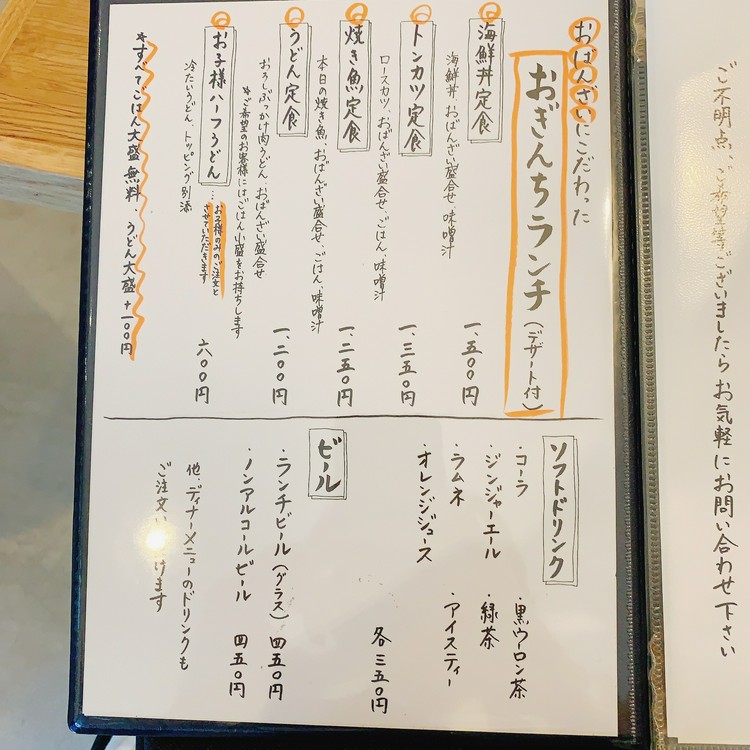 ご不明点、ご希望等ございましたらお気軽にお問い合わせ下さい
おばんざいにこだわった
おぎんちランチ(デザート付)
海鮮丼定食
海鮮丼、おばんざい盛合せ、味噌汁
一、五〇〇円
トンカツ定食
ロースカツ、おばんざい盛合せ、ごはん、味噌汁
一、三五〇円
焼き魚定食
本日の焼き魚、おばんざい盛合せ、ごはん、味噌汁
一、二五〇円
うどん定食
おろしぶっかけ肉うどん、おばんざい盛合せ
*ご希望のお客様にはごはん小盛をお持ちします
一、二〇〇円
お子様ハーフうどん
…お子様のみのご注文と
させていただきます
冷たいうどん、トッピング別添
六〇〇円
*すべてごはん大盛無料、うどん大盛+一〇〇円
ソフトドリンク
・コーラ
・黒ウーロン茶
・ジンジャーエール
・緑茶
・ラムネ
・アイスティー
・オレンジジュース
各三五〇円
ビール
・ランチビール(グラス) 四五〇円
・ノンアルコールビール 四五〇円
他、ディナーメニューのドリンクも
ご注文い けます